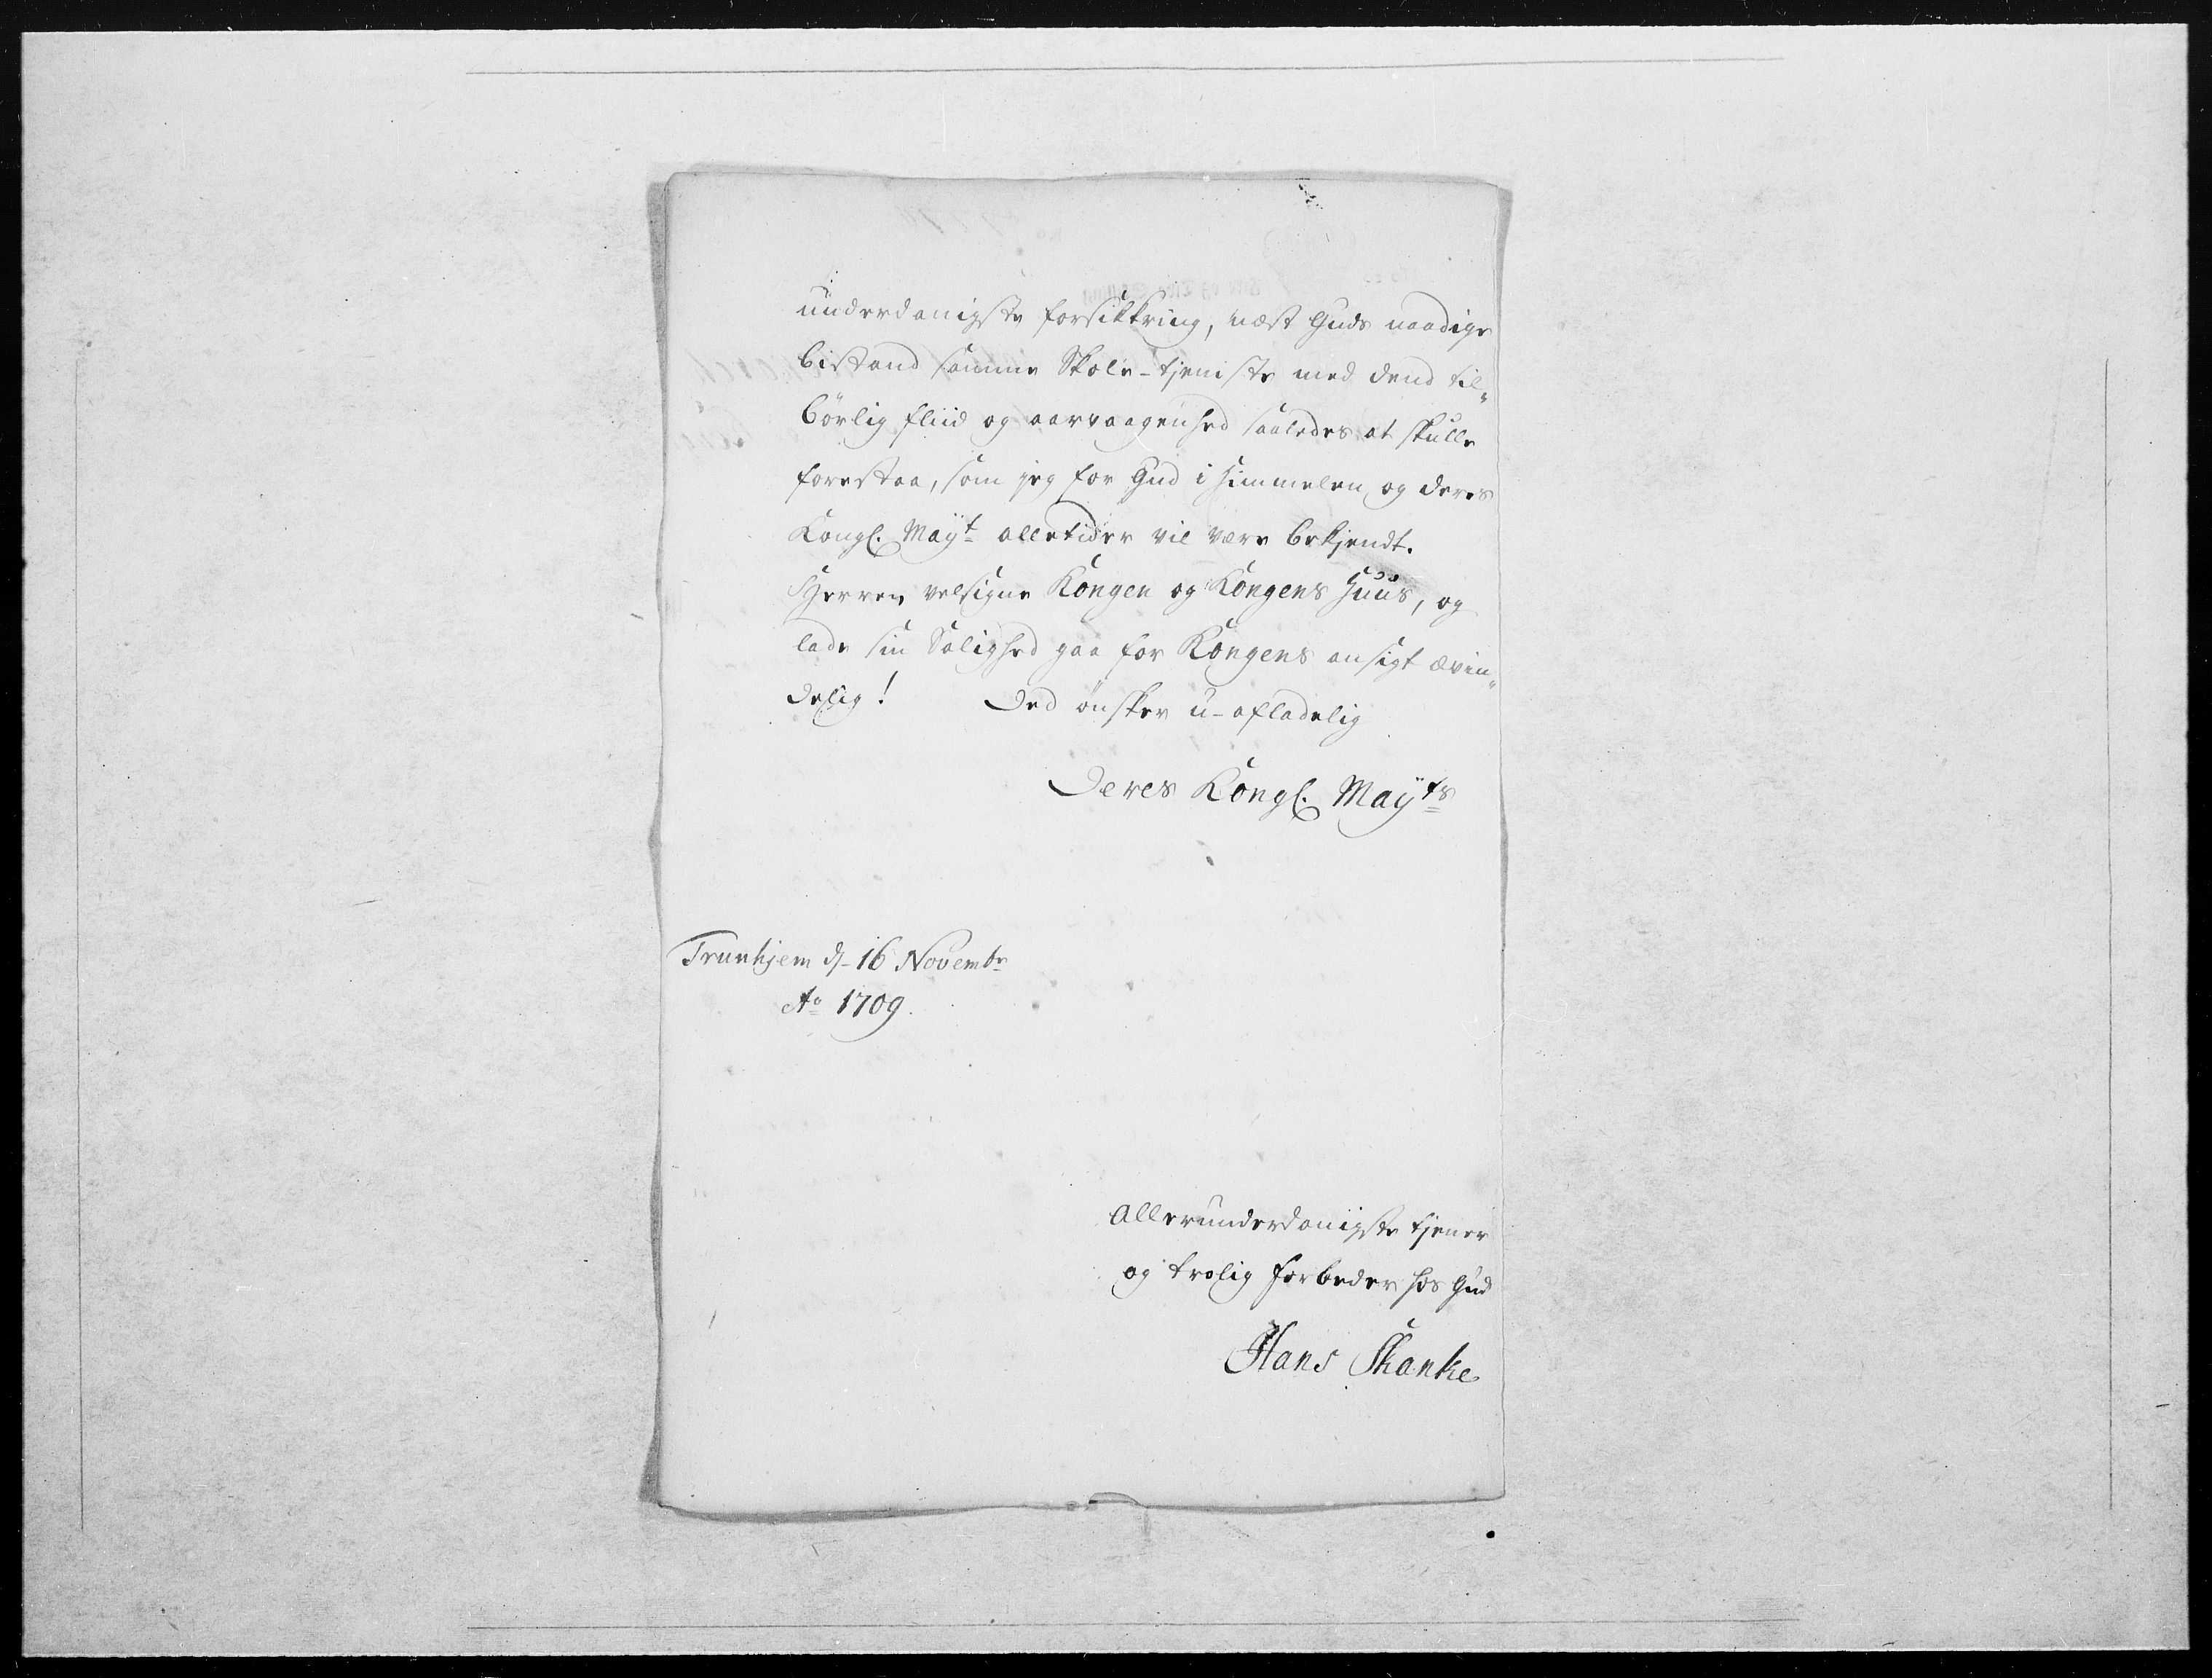 underdanigste forsikkring, næst Guds naadige
bistand samme Skole-tjeniste med dend til„
börlig fliid og aarvaagenhed saaledes at skulle
forestaa, som jeg for Gud i Himmelen og deres
Kongl. Mayt alletider vil være bekjendt.
Herren velsigne Kongen og Kongens Huus, og
lade sin Salighed gaa for Kongens ansigt ævin„
delig! Ded ønsker u-afladelig
Deres Kongl. Mayts
Trunhjem d. 16 Novembr
Ao 1709.
allerunderdanigste tjener
og trolig forbeder hos Gud
Hans Skanke